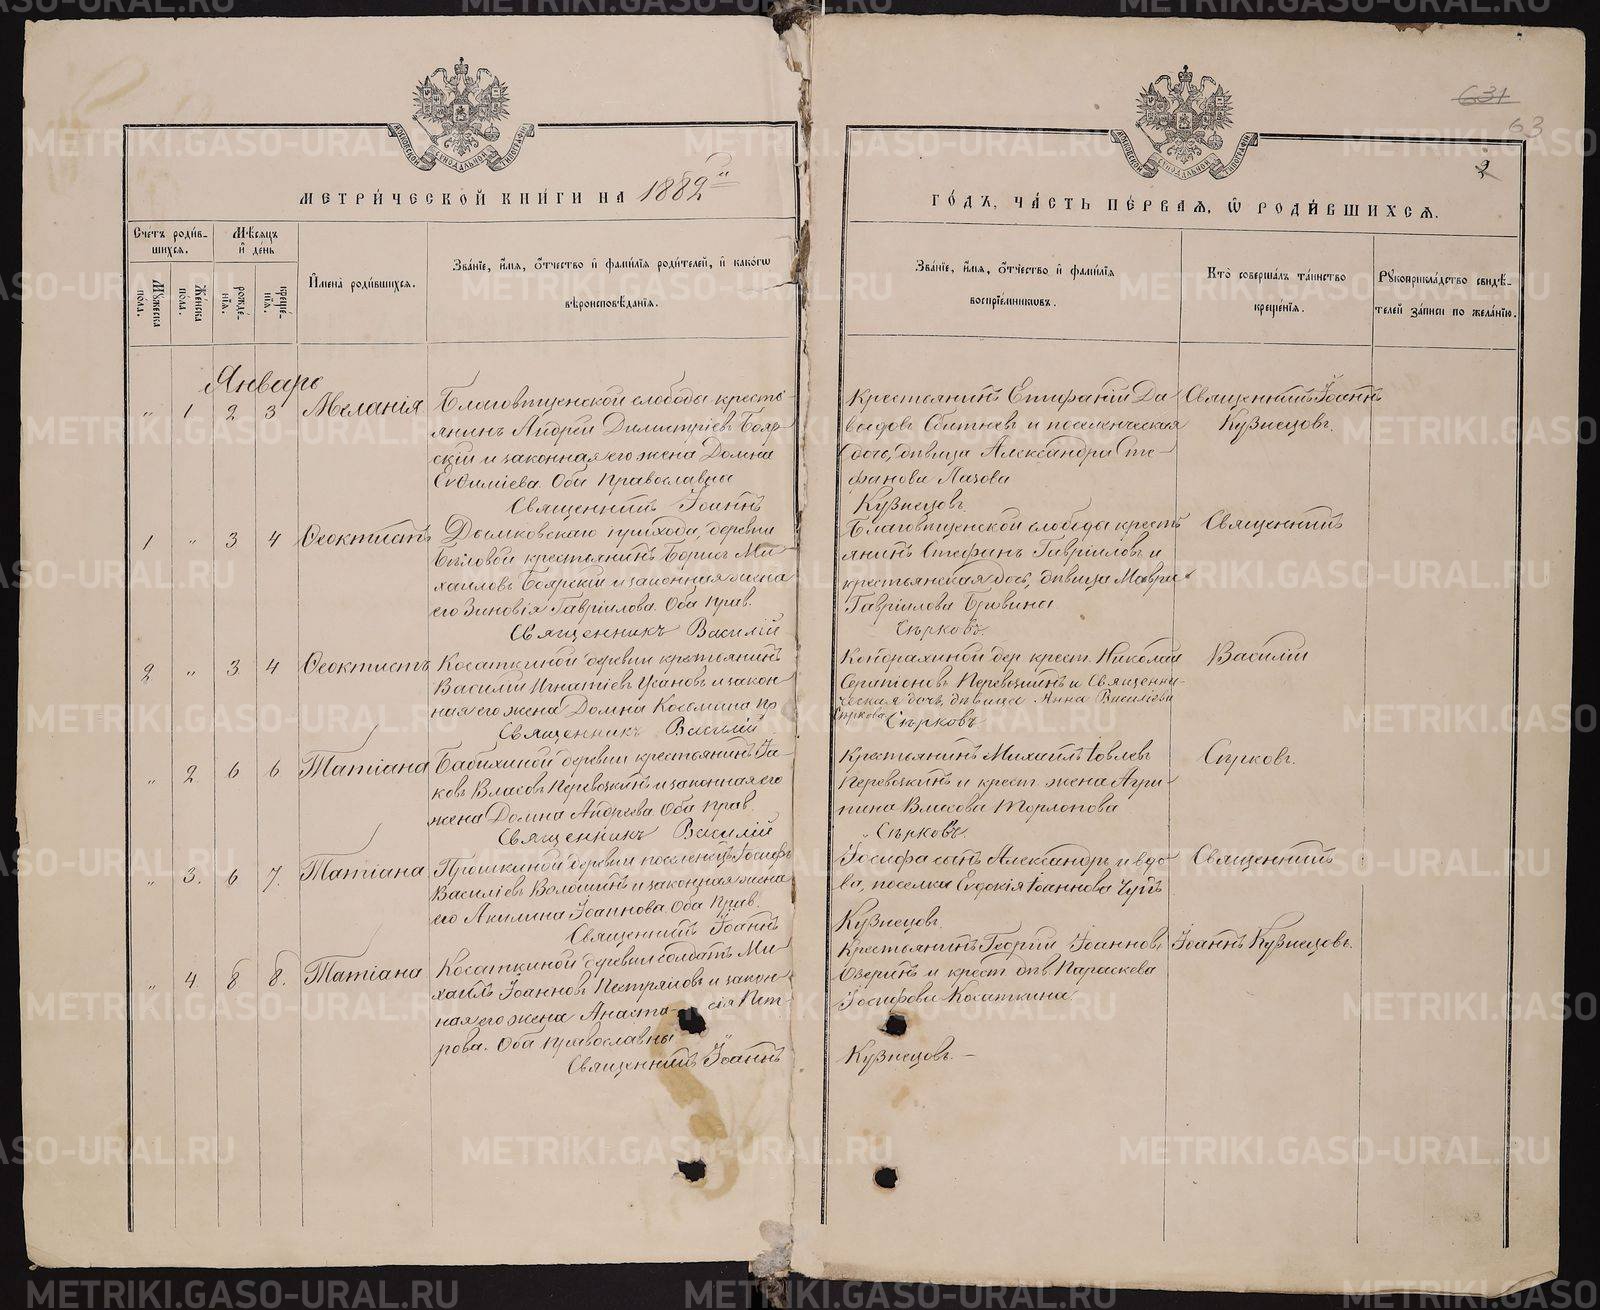 МЕТРИ́ЧЕСКОЙ КНИ́ГИ НА 1882й
ГО́ДЪ, ЧА́СТЬ ПЕ́РВАЯ, Ѡ҆ РОДИ́ВШИХСѦ.
631
63
2
Сче́тъ роди́в-
шихся.
Мѣ́сяцъ
и҆ де́нь
Му́жеска по́ла.
Же́нска по́ла.
рожде́-
нїя.
креще́-
нїя.
И҆мена̀ роди́вшихся.
Зва́нїе, и҆́мя, ѻ҆́тчество и҆ фами́лїя роди́телей, и҆ како́гѡ
вѣроисповѣ́данїя.
Зва́нїе, и҆́мя, ѻ҆́тчество и҆ фами́лїя
воспрїе́мниковъ.
Кто̀ соверша́лъ та́инство
креще́нїя.
Рꙋкоприкла́дство свидѣ́-
телей за́писи по жела́нїю.
Январь
" 1 2 3 Меланія
Благовѣщенской слободы кресть-
янинъ Андрей Димитріевъ Бояр-
скій и законная его жена Домна
Евѳиміева. Оба православны
Священникъ Іоаннъ
Крестьянинъ Епифаній Да-
выдовъ Сбитневъ и поселенческая
дочь, дѣвица Александра Сте-
фанова Лазова
Кузнецовъ.
Священникъ Іоаннъ
Кузнецовъ.
1 " 3 4 Ѳеоктистъ
прихода, деревни
Бѣловой крестьянинъ Борисъ Ми-
хаиловъ Боярскій и законная жена
его Зиновія Гавріилова. Оба прав.
Священникъ Василій
Благовѣщенской слободы кресть-
янинъ Стефанъ Гавріиловъ и
крестьянская дочь, дѣвица Мавра
Гавріилова
Сѣрковъ.
Священникъ
2 " 3 4 Ѳеоктистъ
Косаткиной деревни крестьянинъ
Василій Игнатіевъ Усановъ и закон-
ная его жена Домна Космина пр
Священникъ Василій
Кондрахиной дер. крест. Николай
Серапіоновъ Перевозкинъ и священни-
ческая дочь, дѣвица Анна Василіева
Сѣркова
Сѣрковъ
Василій
" 2 6 6 Татіана
Бабихиной деревни крестьянинъ Іа-
ковъ Власовъ Перевозкинъ и законная его
жена Домна Андреева. Оба прав.
Священникъ Василій
Крестьянинъ Михаилъ Іовлевъ
Перевозкинъ и крест. жена Агри-
пина Власова Торлопова
Сѣрковъ
Сѣрковъ.
" 3. 6 7. Татіана
Прошкиной деревни поселенецъ Іосифъ
Василіевъ Волошинъ и законная жена
его Акилина Іоаннова. Оба прав.
Священникъ Іоаннъ
Іосифа сынъ Александръ и вдо-
ва, поселка Евдокія Іоаннова
Кузнецовъ.
Священникъ
" 4. 8 8. Татіана
Косаткиной деревни солдатъ Ми-
хаилъ Іоанновъ Пестряковъ и закон-
ная его жена Анаста- сія Пет-
рова. Оба православны
Священникъ Іоаннъ
Крестьянинъ Георгій Іоанновъ
Озеринъ и крест. дѣв. Параскева
Іосифова Косаткина
Кузнецовъ. –
Іоаннъ Кузнецовъ.
METRIKI.GASO-URAL.RU